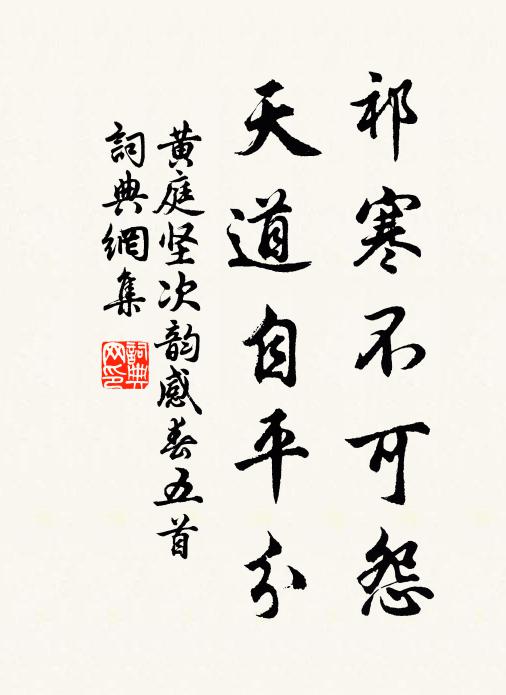 祁寒不可怨
天道自平分
黄庭坚次韵感春五首
詞典網集
詞典網印